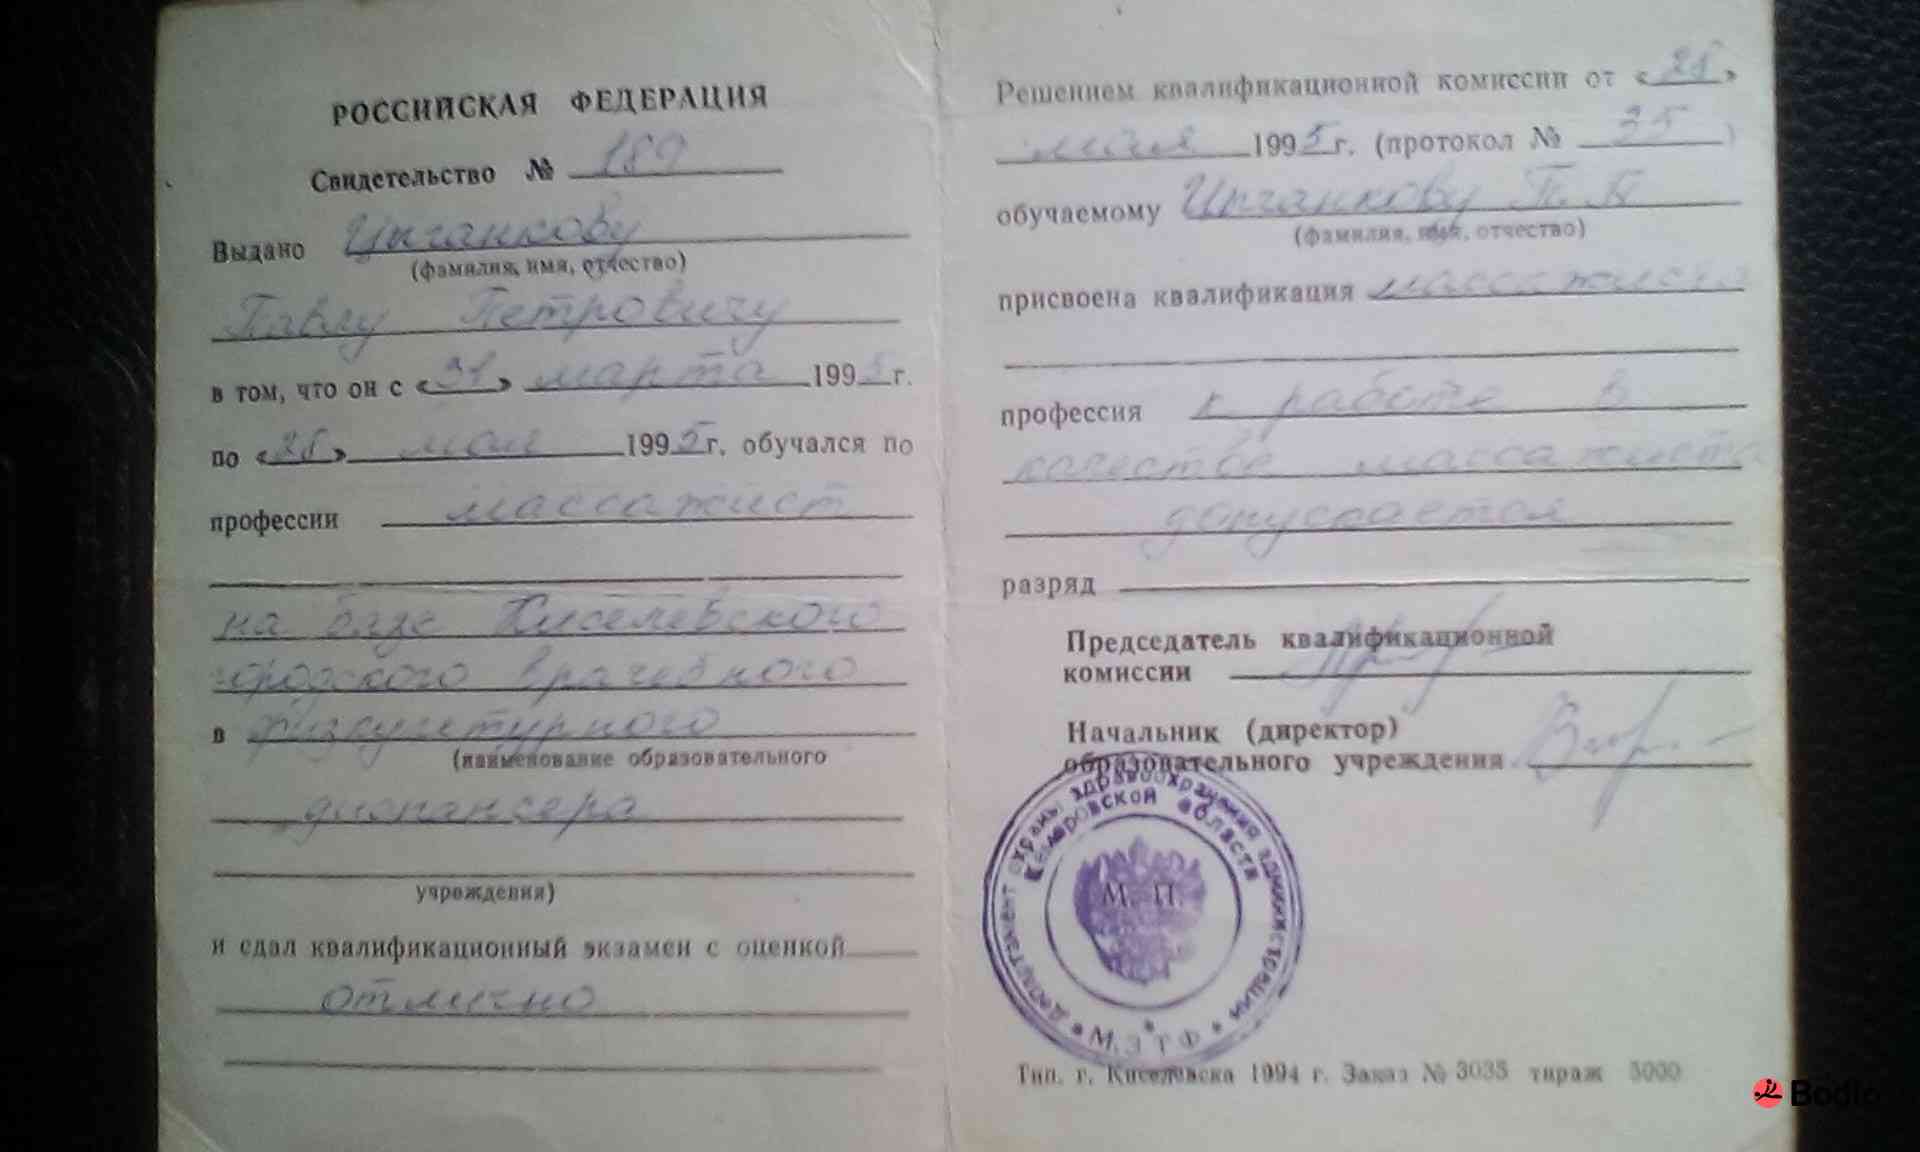 РОССИЙСКАЯ ФЕДЕРАЦИЯ
Свидетельство № 189
Выдано Цыганкову
(фамилия, имя, отчество)
Павлу Петровичу
в том, что он с «31» марта 1995 г.
по «25» мая 1995 г, обучался по
профессии массажист
на базе Киселевского
городского врачебного
в физкультурного
(наименование образовательного
диспансера
учреждения)
и сдал квалификационный экзамен с оценкой
отлично
Решением квалификационной комиссии от «25»
мая 1995 г. (протокол № 35)
обучаемому Цыганкову П. П
(фамилия, имя, отчество)
присвоена квалификация массажиста
профессия к работе в
качестве массажиста
допускается
разряд
Председатель квалификационной
комиссии
Начальник (директор)
образовательного учреждения
Департамент охраны здравоохранения администрации
Кемеровской области
М. П.
М.З РФ
Тип. г. Киселевска 1994 г. Заказ № 3035 тираж 5000
Bodio